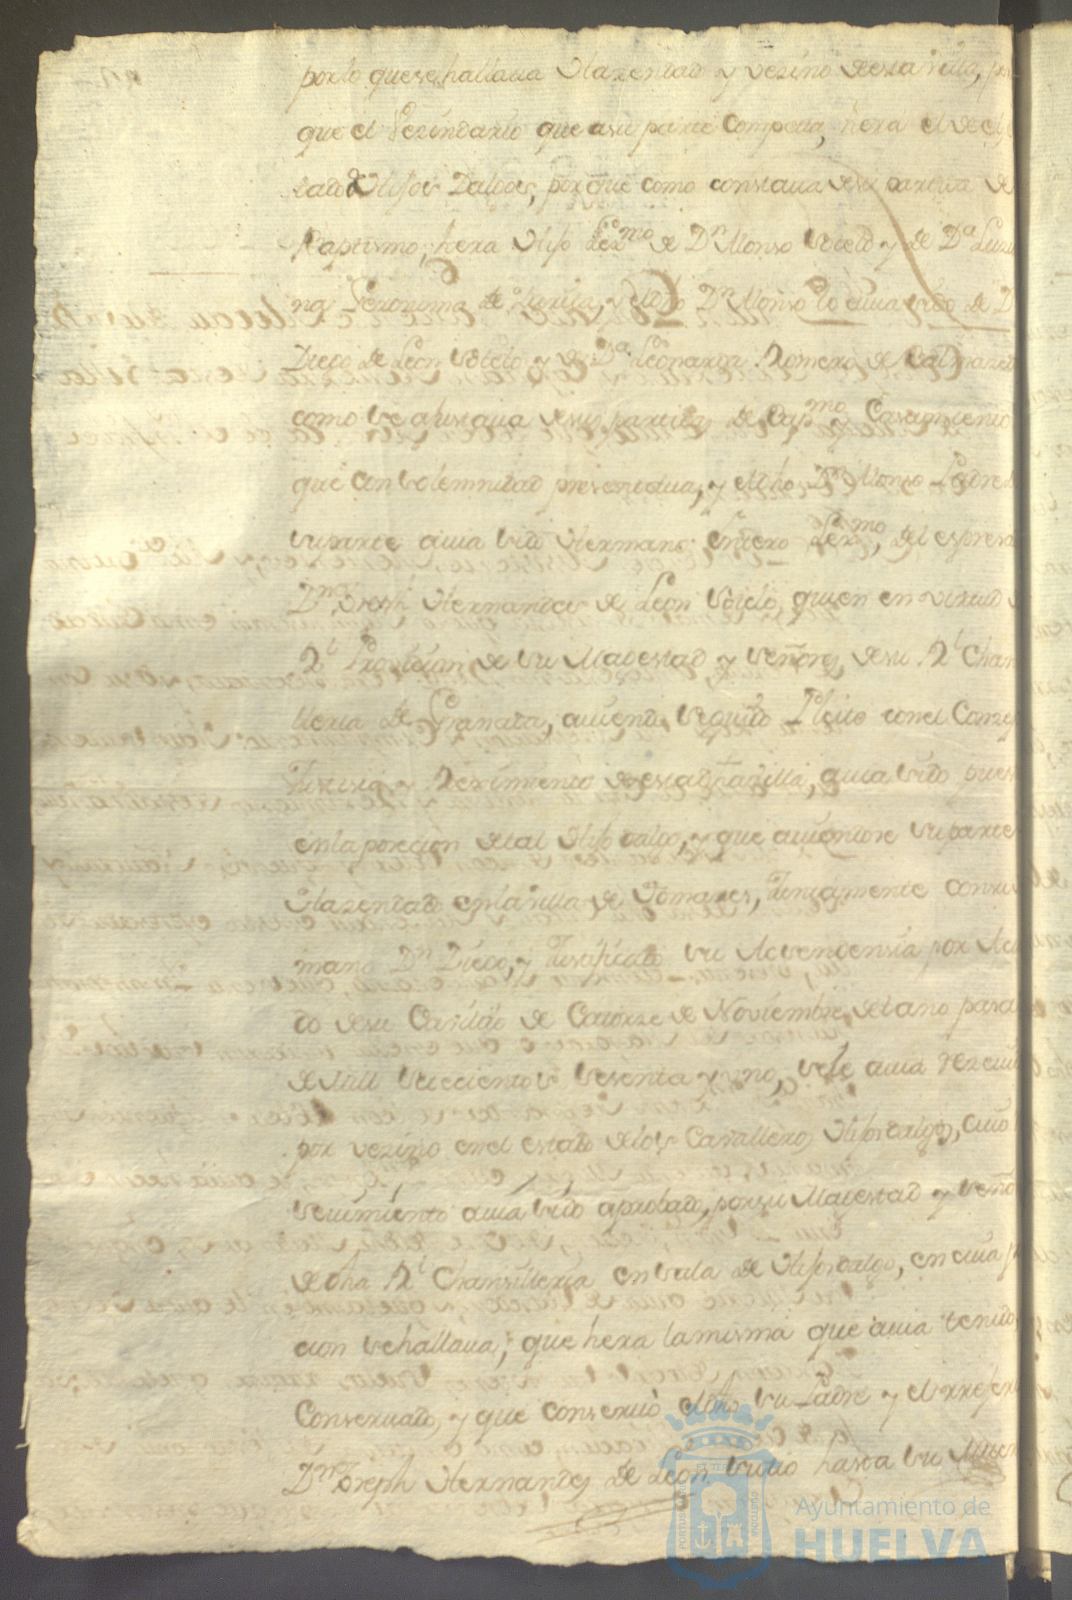 por lo que se hallaua Hazendado y vezino de esta villa, po
que el Vezindario que a su parte Competia, hera el de el
tado de Hijos Dalgos, porque como constaua de su partida de
Baptismo, hera Hijo Lexmo de Dn Alonso Sotelo y de Da
na Geronima de Zurita, y el dho Dn Alonso lo auia sido de D
Diego de Leon Sotelo y de Da Leonarda Romero de
como se ajustaua de sus partidas de Bapmo Casamiento
que con solemnidad presentaua, y el dho Dn Alonso Padre d
su parte auia sido Hermano entero Lexmo, del espresa
Dn Joseph Hernandes de Leon Sotelo, quien en virtud
Rl Prouision de su Magestad y Señores de su Rl Chan
lleria de Granada, auiendo seguido Pleito con el Conze
Justizia y Reximiento de esta dha Villa, auia sido pues
en la posecion de tal Hijo dalgo, y que auiendose su parte
Hazendado en la villa de Tomares, Juntamente con su
mano Dn Diego, y Justificado su Acendensia por Acu
do de su Cauildo de Catorze de Nouiembre del año pasa
de Mill Setecientos Sesenta y uno, se le auia rezeuido
por vezino en el estado de los Caualleros Hijosdalgo, cuio
reseuimiento auia sido aprobado, por su Magestad y Seño
de dha Rl Chansilleria en sala de Hijosdalgo, en cuia p
cion se hallaua, que hera la misma que auia tenido
Conseruado, y que conseruò el dho su Padre y el rrefer
Dn Joseph Hernandes de Leon su tio hasta su Muer
Ayuntamiento de
HUELVA